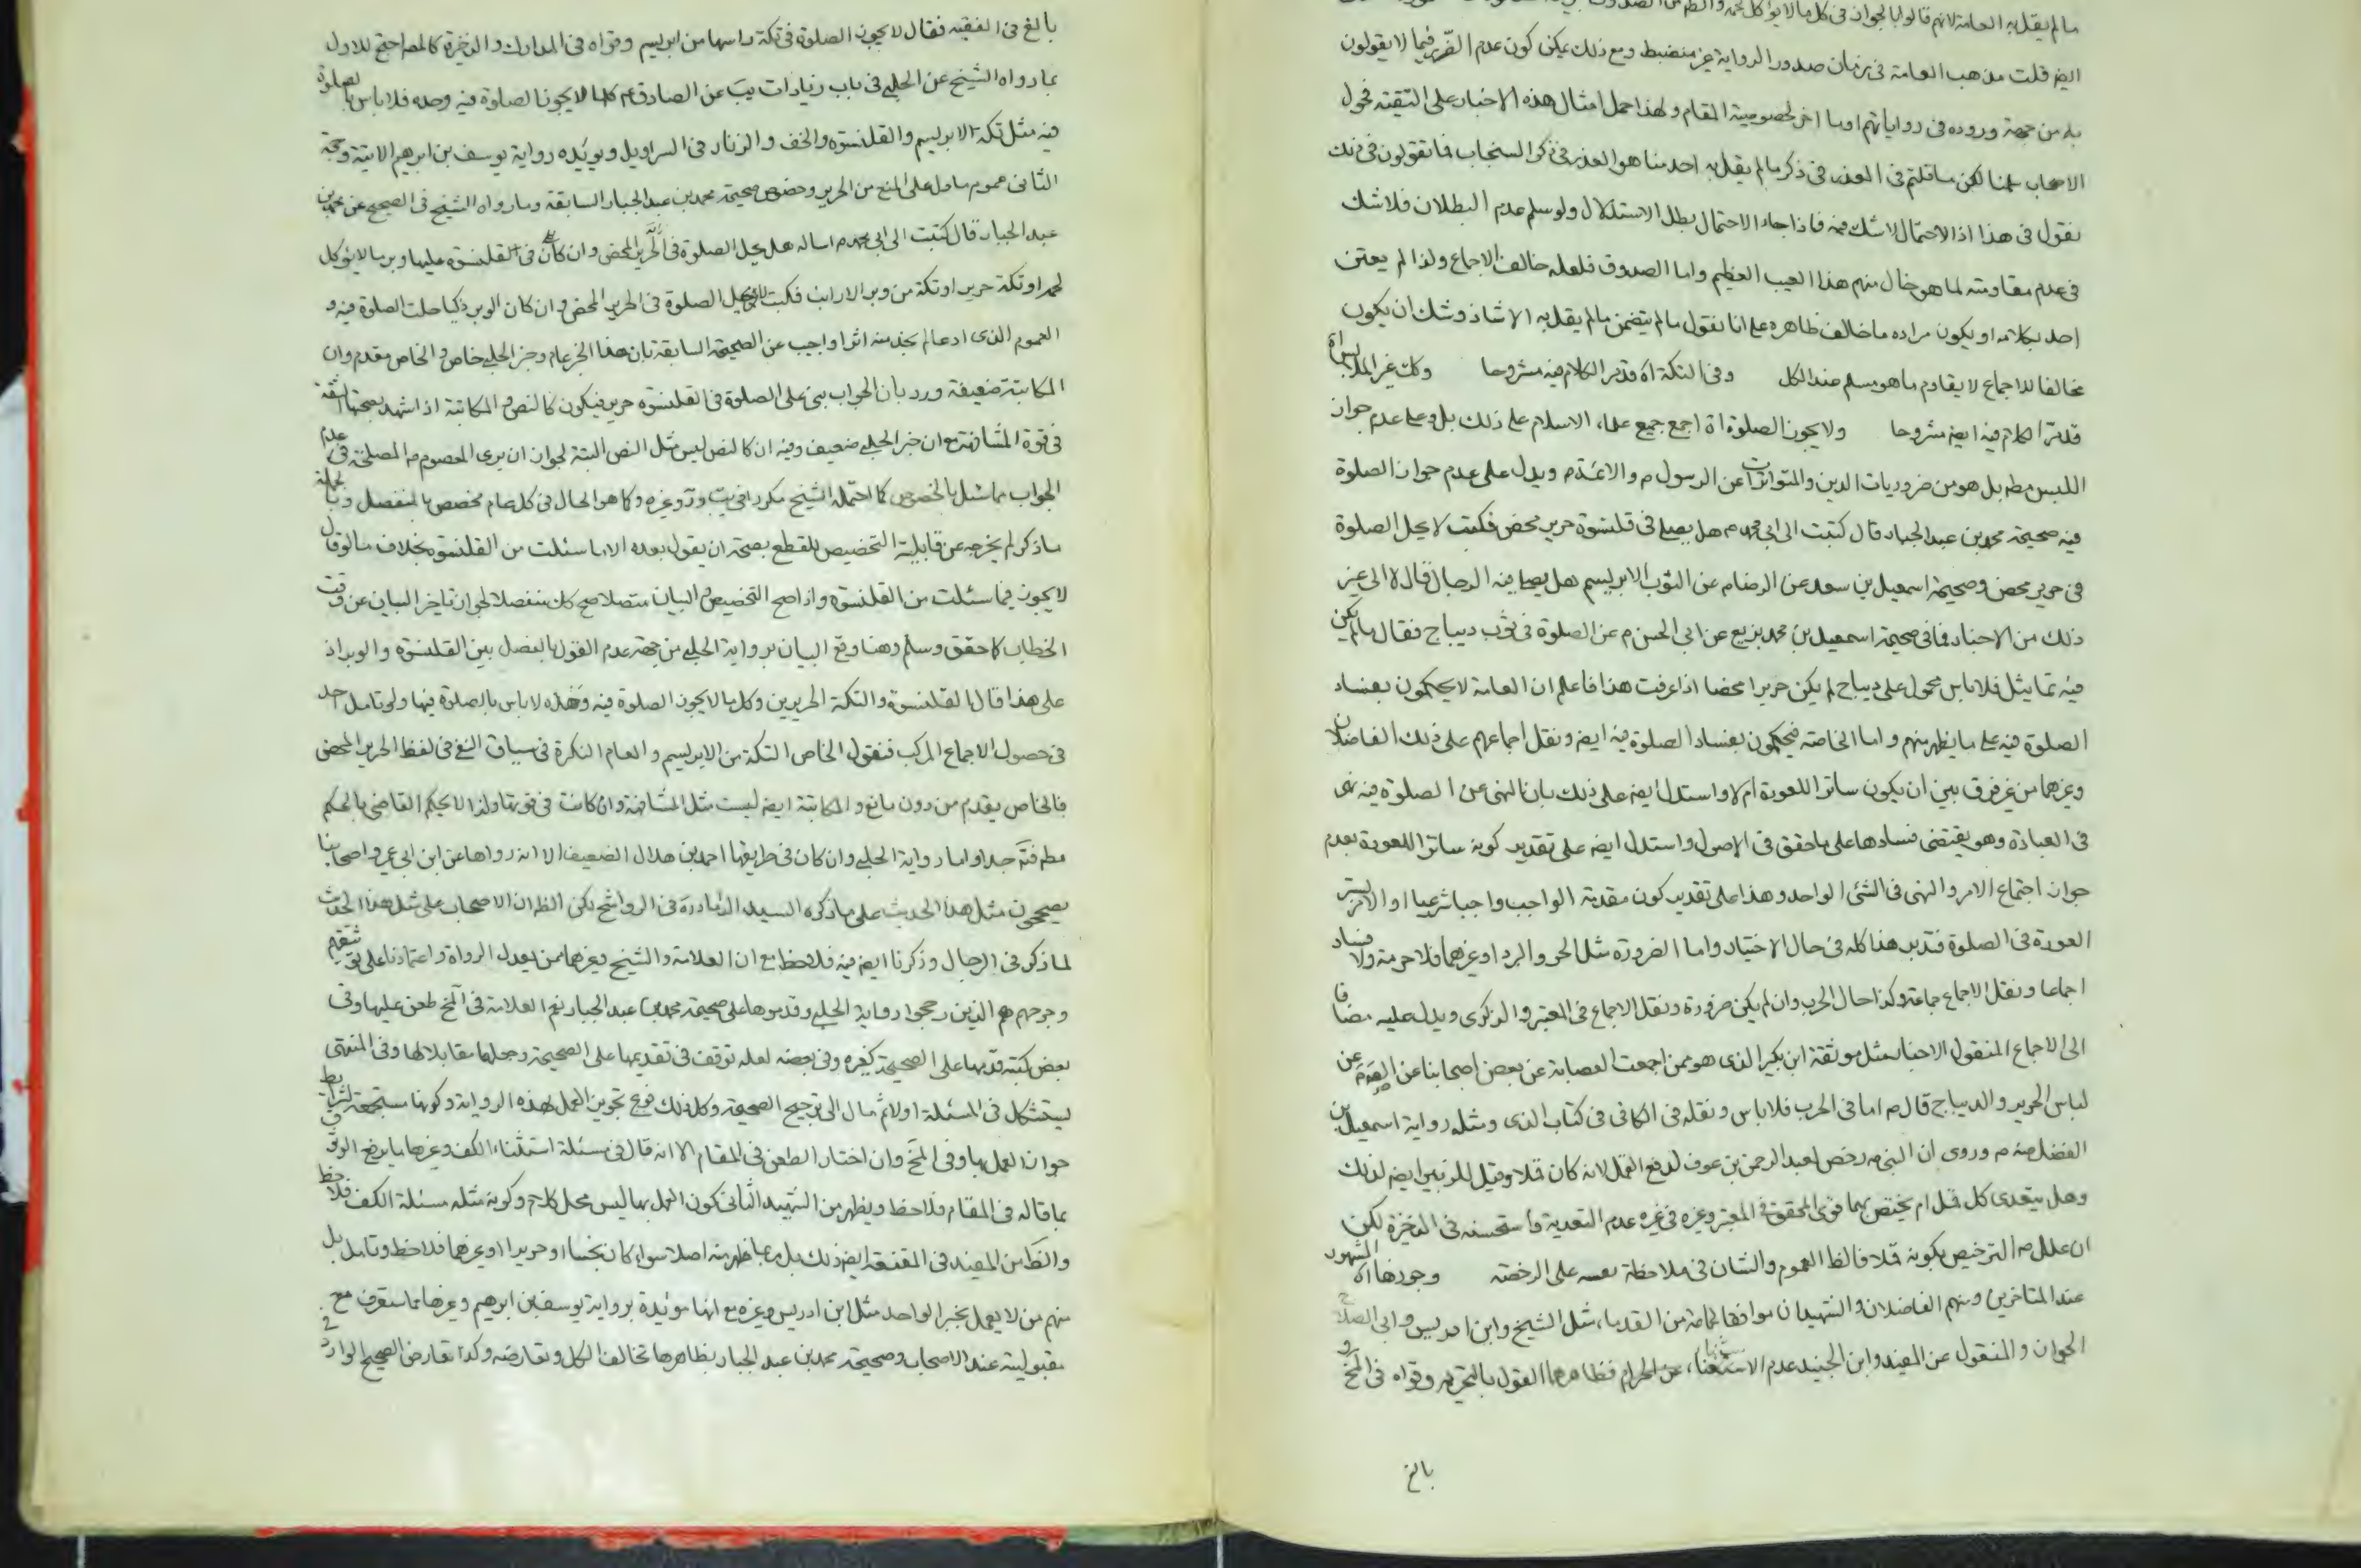 ما لم يقل به العامة لانهم قالوا بالجواز في كل ما لا يؤكل لحمه
ايض قلت مذهب العامة في زمان صدور الرواية غير منضبط ومع ذلك يمكن كون عدم الضرر فيما لا يقولون
به من جهة وروده في رواياتهم او بنا اخر لخصوصية المقام ولهذا حمل امثال هذه الاخبار على التقية فحول
الاصحاب سلمنا لكن ما قلتم في العذر في ذكر ما لم يقل به احد منا هو العذر في ذكر السنجاب فما تقولون في ذلك
نقول في هذا اذ الاحتمال لا شك فيه فاذا جاء الاحتمال بطل الاستدلال ولو سلم عدم البطلان فلا شك
في عدم مقاومته لما هو خال منهم هذا العيب العظيم واما الصدوق فلعله خالف الاجماع ولذا لم يعتن
احد بكلامه او يكون مراده ما خالف ظاهره على انا نقول ما لم يتضمن ما لم يقل به الا شاذ وشك ان يكون
مخالفا للاجماع لا يقاوم ما هو مسلم عند الكل وفي التكة اه قد مر الكلام فيه مشروحا وكك غير الملابس اه
قد مر الكلام فيه ايض مشروحا ولا يجوز الصلوة اه اجمع جميع علماء الاسلام على ذلك بل وعلى عدم جواز
اللبس مط بل هو من ضروريات الدين والمتواترات عن الرسول ص والائمة ع ويدل على عدم جواز الصلوة
فيه صحيحة محمد بن عبد الجبار قال كتبت الى ابي محمد ع هل يصلي في قلنسوة حرير محض فكتب لا يحل الصلوة
في حرير محض وصحيحة اسمعيل بن سعد عن الرضا ع عن الثوب الابريسم هل يصلي فيه الرجال قال لا الى غير
ذلك من الاخبار فما في صحيحة اسمعيل بن محمد بزيع عن ابي الحسن ع عن الصلوة في ثوب ديباج فقال ما لم يكن
فيه تماثيل فلا باس محمول على ديباج لم يكن حريرا محضا اذا عرفت هذا فاعلم ان العامة لا يحكمون بفساد
الصلوة فيه على ما يظهر منهم واما الخاصة فيحكمون بفساد الصلوة فيه ايض ونقل اجماعهم على ذلك الفاضلان
وغيرهما من غير فرق بين ان يكون ساترا للعورة ام لا واستدل ايض على ذلك بان النهي عن الصلوة فيه نهى
في العبادة وهو يقتضي فسادها على ما حقق في الاصول واستدل ايض على تقدير كونه ساترا للعورة بعدم
جواز اجتماع الامر والنهي في الشئ الواحد وهذا على تقدير كون مقدمة الواجب واجبا شرعيا او الامر بستر
العورة في الصلوة فتدبر هذا كله في حال الاختيار واما الضرورة مثل الحر والبرد او غيرهما فلا حرمة ولا فساد
اجماعا ونقل الاجماع جماعة وكذا حال الحرب وان لم يكن ضرورة ونقل الاجماع في المعتبر والذكرى ويدل عليه مضافا
الى الاجماع المنقول الاخبار مثل موثقة ابن بكير الذي هو ممن اجمعت العصابة عن بعض اصحابنا عن الصادق ع عن
لباس الحرير والديباج قال ع اما في الحرب فلا باس ونقله في الكافي في كتاب الذي ومثله رواية اسمعيل بن
الفضل عنه ع وروى ان النبي ص رخص لعبد الرحمن بن عوف لدفع القمل لانه كان قملا وقيل للزبير ايض لذلك
وهل يتعدى كل قمل ام يختص بهما قوى المحقق في المعتبر وغيره في غيره عدم التعدية واستحسنه في الذخيرة لكن
ان علل ص الترخيص بكونه قملا فالظ العموم والشان في ملاحظة نصه على الرخصة وجوزها اه المشهور
عند المتاخرين ومنهم الفاضلان والشهيدان موافقا لجماعة من القدماء مثل الشيخ وابن ادريس وابي الصلاح
الجواز والمنقول عن المفيد وابن الجنيد عدم الاستثناء عن الحرام فظاهرهما القول بالتحريم وقواه في المخ و
بالغ
بالغ في الفقيه فقال لا يجوز الصلوة في تكة راسها من ابريسم وقواه في المدارك والذخيرة كالمص احتج للاول
بما رواه الشيخ عن الحلبي في باب زيادات يب عن الصادق ع كلما لا يجوز الصلوة فيه وحده فلا باس بالصلوة
فيه مثل تكة الابريسم والقلنسوة والخف والزنار في السراويل ويؤيده رواية يوسف بن ابرهيم الاتية وحجة
الثاني عموم ما دل على المنع من الحرير وخصوص صحيحة محمد بن عبد الجبار السابقة وما رواه الشيخ في الصحيح عن محمد بن
عبد الجبار قال كتبت الى ابي محمد ع اساله هل يحل الصلوة في الحرير المحض وان كان في القلنسوة عليها وبر ما لا يؤكل
لحمه او تكة حرير او تكة من وبر الارانب فكتب لا يحل الصلوة في الحرير المحض وان كان الوبر ذكيا حلت الصلوة فيه و
العموم الذي ادعا لم نجد منه اثرا واجيب عن الصحيحة السابقة بان هذا الخبر عام وخبر الحلبي خاص والخاص مقدم وان
المكاتبة ضعيفة ورد بان الجواب بنى على الصلوة في القلنسوة حرير فيكون كالنص والمكاتبة اذا شهد بصحتها الثقة
في قوة المشافهة مع ان خبر الحلبي ضعيف وفيه ان كالنص ليس مثل النص البتة لجواز ان يرى المعصوم ع المصلحة في عدم
الجواب مما سئل بالخصوص كما احتمله الشيخ مكررا في يب وغيره وكما هو الحال في كل عام مخصص بالمنفصل وبالجملة
ما ذكر لم يخرجه عن قابلية التخصيص للقطع بصحة ان يقول بعده الا ما سئلت من القلنسوة بخلاف ما لو قال
لا يجوز فيما سئلت من القلنسوة واذا صح التخصيص والبيان متصلا صح كك منفصلا لجواز تاخير البيان عن وقت
الخطاب كما حقق وسلم وهنا وقع البيان برواية الحلبي من جهة عدم القول بالفصل بين القلنسوة والوبر اذ
على هذا قال القلنسوة والتكة الحريرين وكل ما لا يجوز الصلوة فيه وحده لا باس بالصلوة فيها ولو تامل احد
في حصول الاجماع المركب فنقول الخاص التكة من الابريسم والعام النكرة في سياق النفي في لفظ الحرير المحض
فالخاص يقدم من دون مانع والمكاتبة ايض ليست مثل المشافهة وان كانت في قوتها ولذا لا يحكم القاضي بالحكم
مط فتم جدا واما رواية الحلبي وان كان في طريقها احمد بن هلال الضعيف الا انه رواها عن ابن ابي عمير واصحابنا
يصححون مثل هذا الحديث على ما ذكره السيد الداماد ره في الرواشح لكن الظ ان الاصحاب على مثل هذا الحديث
لما ذكر في الرجال وذكرنا ايض فيه فلاحظ مع ان العلامة والشيخ وغيرهما ممن يعدل الرواة واعتمادنا على توثيقهم
وجرحهم هم الذين رجحوا رواية الحلبي وقدموها على صحيحة محمد بن عبد الجبار نعم العلامة في المخ طعن عليها وفي
بعض كتبه قدمها على الصحيحة كغيره وفي بعضه لعله توقف في تقديمها على الصحيحة وجعلها مقابلا لها وفي المنتهى
يستشكل في المسئلة اولا ثم مال الى ترجيح الصحيحة وكل ذلك فرع تجويز العمل بهذه الرواية وكونها مستجمعة لشرائط
جواز العمل بها وفي المخ وان اختار الطعن في المقام الا انه قال في مسئلة استثناء الكف وغيرها ما يرفع الوثوق
بما قاله في المقام فلاحظ ويظهر من الشهيد الثاني كون العمل بها ليس محل كلام وكونه مثله مسئلة الكف فلاحظ
والظ من المفيد في المقنعة ايض ذلك بل ربما ظهر منه اصلا سواء كان نجسا او حريرا او غيرهما فلاحظ وتامل بل
منهم من لا يعمل بخبر الواحد مثل ابن ادريس وغيره مع انها مؤيدة برواية يوسف بن ابرهيم وغيرها مما ستعرف مع
مقبوليته عند الاصحاب وصحيحة محمد بن عبد الجبار بظاهرها تخالف الكل وتعارضه وكذا تعارض الصحيح الوارد في